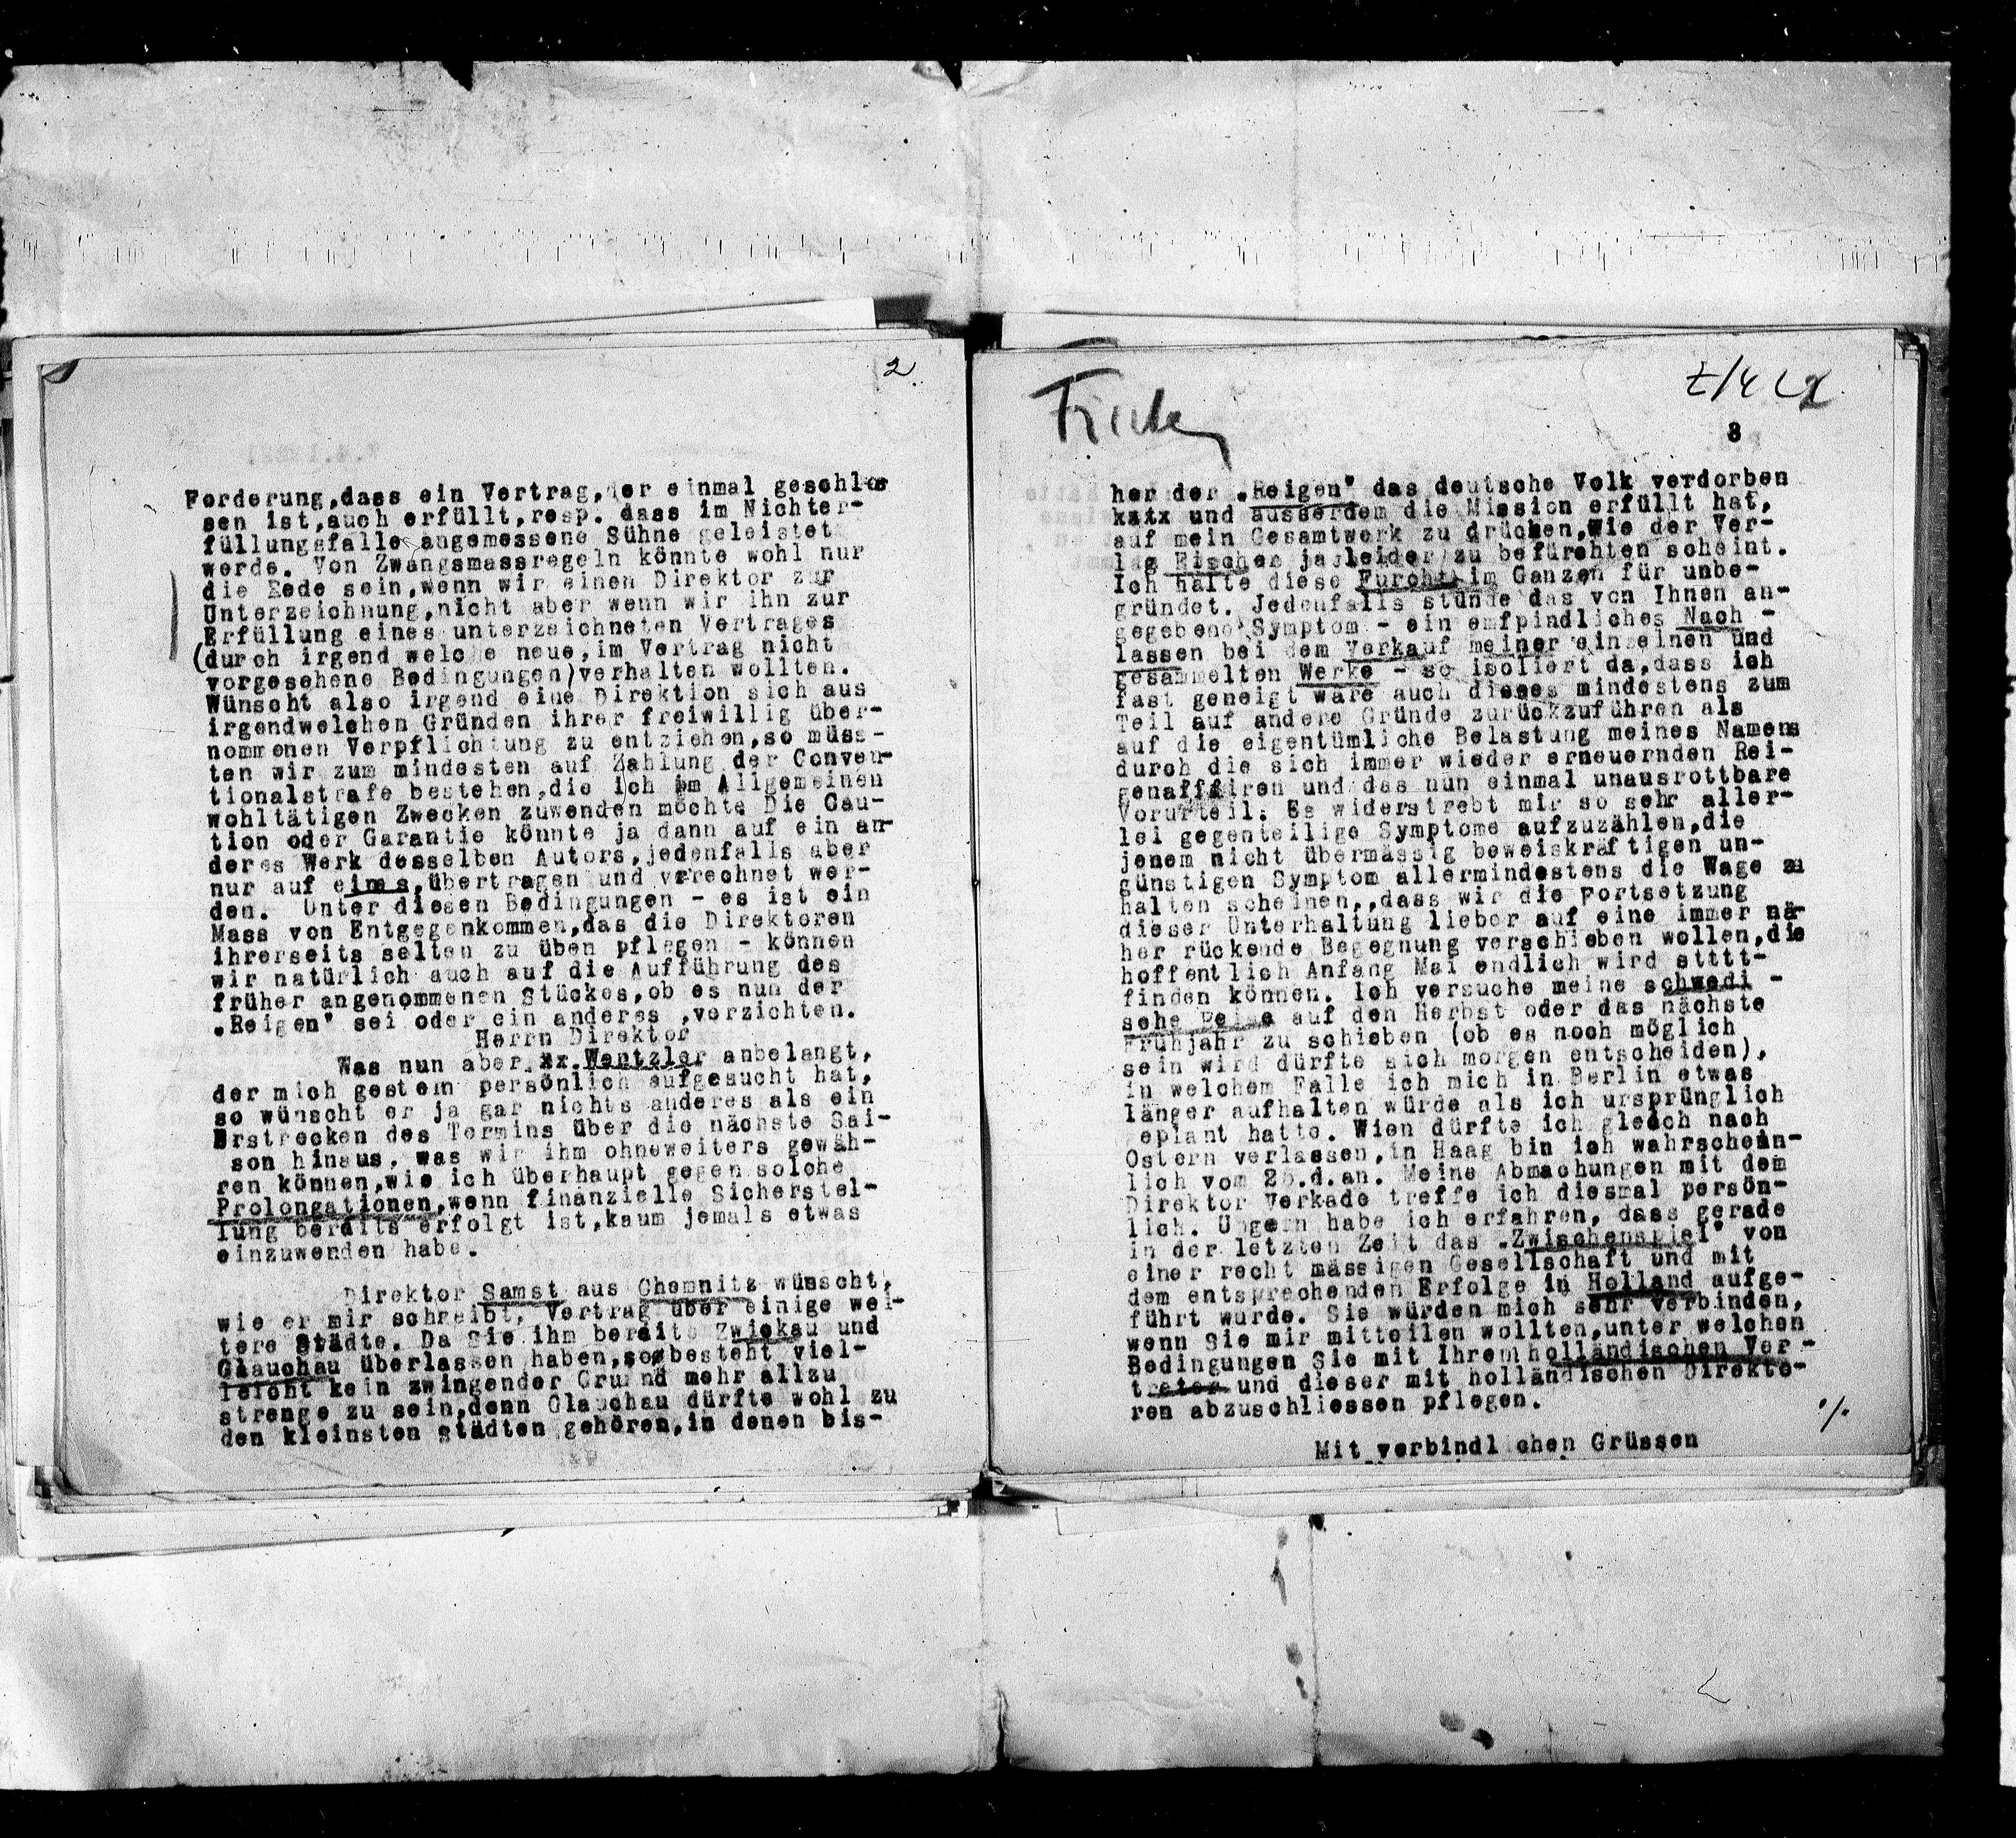 2.
Forderung,dass ein Vertrag,der einmal geschlos
sen ist,auch erfüllt,resp. dass im Nichter-
füllungsfalle angemessene Sühne geleistet
werde. Von Zwangsmassregeln könnte wohl nur
die Rede sein,wenn wir einen Direktor zur
Unterzeichnung,nicht aber wenn wir ihn zur
Erfüllung eines unterzeichneten Vertrages
(durch irgend welche neue,im Vertrag nicht
vorgesehene Bedingungen)verhalten wollten.
Wünscht also irgend eine Direktion sich aus
irgendwelchen Gründen ihrer freiwillig über-
nommenen Verpflichtung zu entziehen,so müss-
ten wir zum mindesten auf Zahlung der Conven-
tionalstrafe bestehen,die ich im Allgemeinen
wohltätigen Zwecken zuwenden möchte Die Cau-
tion oder Garantie könnte ja dann auf ein an-
deres Werk desselben Autors,jedenfalls aber
nur auf eines,übertragen und verrechnet wer-
den. Unter diesen Bedingungen - es ist ein
Mass von Entgegenkommen,das die Direktoren
ihrerseits selten zu üben pflegen - können
wir natürlich auch auf die Aufführung des
früher angenommenen Stückes,ob es nun der
„Reigen" sei oder ein anderes ,verzichten.
Herrn Direktor
Was nun aber xx. Wentzler anbelangt,
der mich gestern persönlich aufgesucht hat,
so wünscht er ja gar nichts anderes als ein
Erstrecken des Termins über die nächste Sai-
son hinaus, was wir ihm ohneweiters gewäh-
ren können,wie ich überhaupt gegen solche
Prolongationen,wenn finanzielle Sicherstel-
lung bereits erfolgt ist,kaum jemals etwas
einzuwenden habe.
Direktor Samst aus Chemnitz wünscht,
wie er mir schreibt, Vertrag über einige wei-
tere Städte. Da Sie ihm bereits Zwickau und
Glauchau überlassen haben,so besteht viel-
leicht kein zwingender Grund mehr allzu
strenge zu sein,denn Glauchau dürfte wohl zu
den kleinsten städten gehören,in denen bis-
3
her der „Reigen" das deutsche Volk verdorben
xxix und ausserdem die Mission erfüllt hat,
auf mein Gesamtwerk zu drücken,wie der Ver-
lag Fischer ja leider zu befürchten scheint.
Ich halte diese Furcht im Ganzen für unbe-
gründet. Jedenfalls stünde das von Ihnen an-
gegebene Symptom - ein emfpindliches Nach -
lassen bei dem Verkauf meiner einzelnen und
gesammelten Werke - so isoliert da,dass ich
fast geneigt wäre auch dieses mindestens zum
Teil auf andere Gründe zurückzuführen als
auf die eigentümliche Belastung meines Namens
durch die sich immer wieder erneuernden Rei-
genaffairen und das nun einmal unausrottbare
Vorurteil. Es widerstrebt mir so sehr aller-
lei gegenteilige Symptome aufzuzählen,die
jenem nicht übermässig beweiskräftigen un-
günstigen Symptom allermindestens die Wage zu
halten scheinen,,dass wir die Fortsetzung
dieser Unterhaltung lieber auf eine immer nä-
her rückende Begegnung verschieben wollen,die
hoffentlich Anfang Mai endlich wird stttt-
finden können. Ich versuche meine schwedi -
sche Reise auf den Herbst oder das nächste
Frühjahr zu schieben (ob es noch möglich
sein wird dürfte sich morgen entscheiden),
in welchem Falle ich mich in Berlin etwas
länger aufhalten würde als ich ursprünglich
eplant hatte. Wien dürfte ich gleich nach
Ostern verlassen,in Haag bin ich wahrschein-
lich vom 25.d.an. Meine Abmachungen mit dem
Direktor Verkade treffe ich diesmal persön-
lich. Ungern habe ich erfahren, dass gerade
in der letzten Zeit das „Zwischenspiel" von
einer recht mässigen Gesellschaft und mit
dem entsprechenden Erfolge in Holland aufge-
führt wurde. Sie würden mich sehr verbinden,
wenn Sie mir mitteilen wollten,unter welchen
Bedingungen Sie mit Ihrem holländischen Ver -
treter und dieser mit holländischen Direkto-
ren abzuschliessen pflegen.
./.
Mit verbindlichen Grüssen